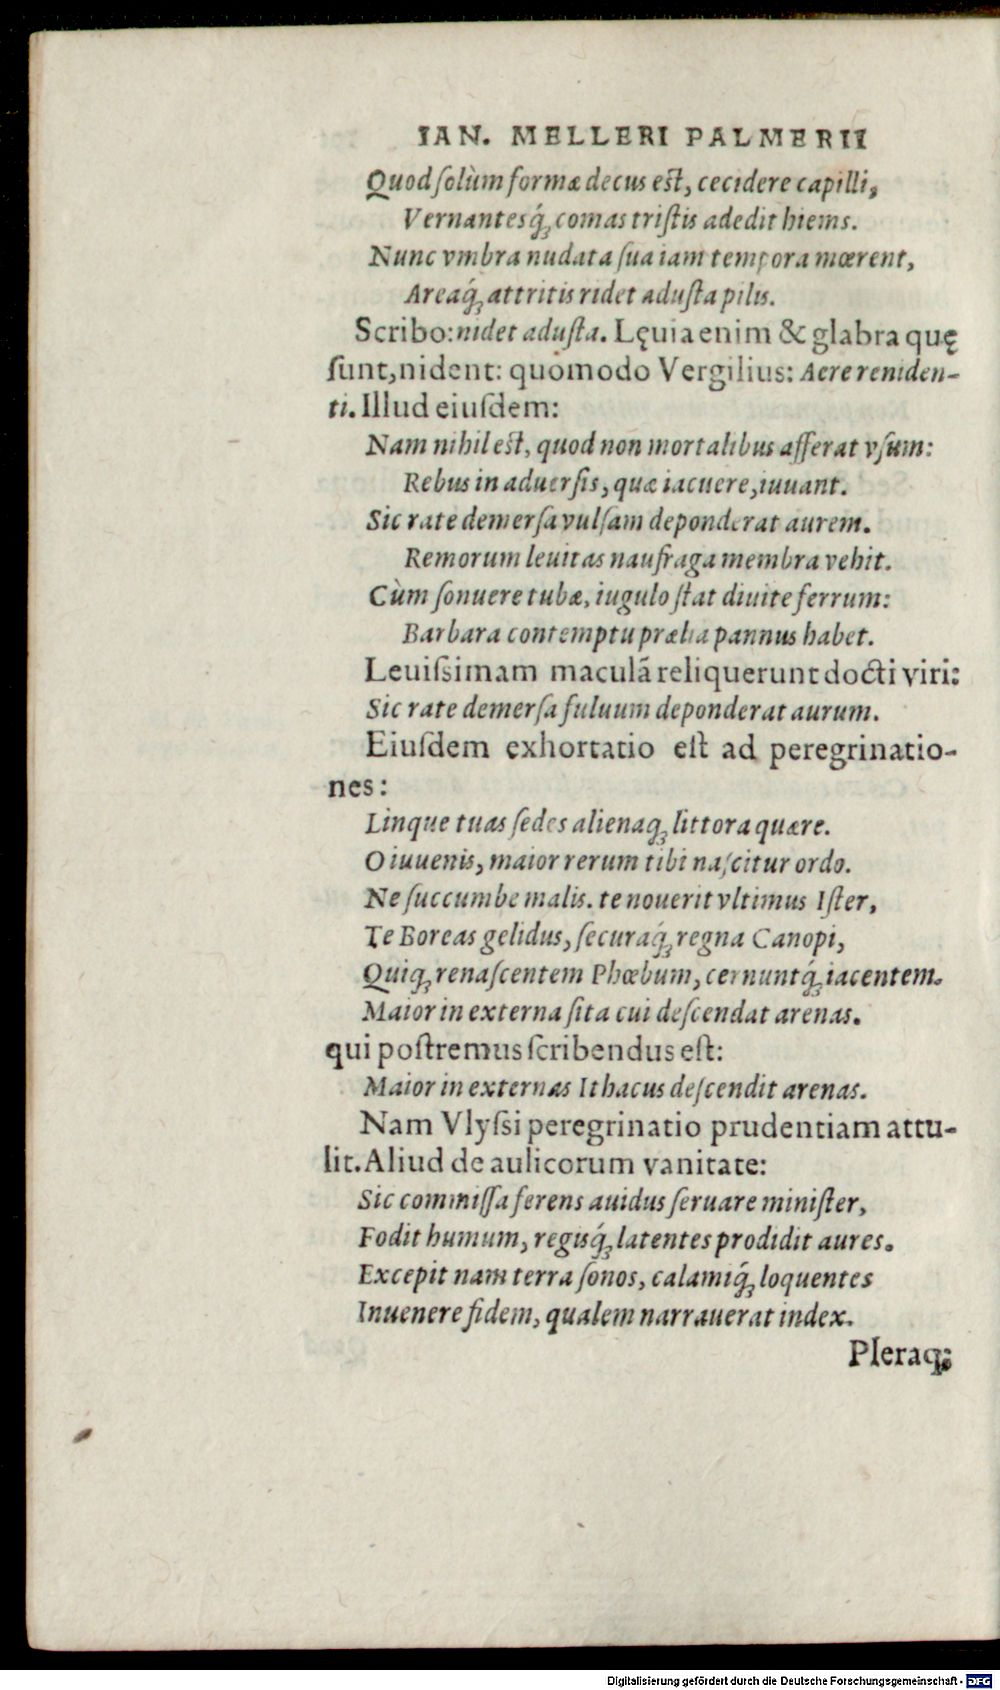 IAN. MELLERI PALMERII
Quod ſolùm formæ decus eſt, cecidere capilli,
Vernantesq́ꝫ comas triſtis adedit hiems.
Nunc vmbra nudata ſua iam tempora mœrent,
Areaq́ꝫ attritis ridet aduſta pilis.
Scribo: nidet aduſta. Lęuia enim & glabra quę
ſunt, nident: quomodo Vergilius: Aere reniden-
ti. Illud eiuſdem:
Nam nihil eſt, quod non mortalibus afferat vſum:
Rebus in aduerſis, quæ iacuere, iuuant.
Sic rate demerſa vulſam deponderat aurem.
Remorum leuitas naufraga membra vehit.
Cùm ſonuere tubæ, iugulo ſtat diuite ferrum:
Barbara contemptu prælia pannus habet.
Leuiſsimam maculā reliquerunt docti viri:
Sic rate demerſa fuluum deponderat aurum.
Eiuſdem exhortatio eſt ad peregrinatio-
nes:
Linque tuas ſedes alienaqꝫ littora quære.
O iuuenis, maior rerum tibi naſcitur ordo.
Ne ſuccumbe malis. te nouerit vltimus Iſter,
Te Boreas gelidus, ſecuraq́ꝫ regna Canopi,
Quiqꝫ renaſcentem Phœbum, cernuntq́ꝫ iacentem.
Maior in externa ſita cui deſcendat arenas.
qui poſtremus ſcribendus eſt:
Maior in externas Ithacus deſcendit arenas.
Nam Vlyſsi peregrinatio prudentiam attu-
lit. Aliud de aulicorum vanitate:
Sic commiſſa ferens auidus ſeruare miniſter,
Fodit humum, regisq́ꝫ latentes prodidit aures.
Excepit nam terra ſonos, calamiq́ꝫ loquentes
Inuenere fidem, qualem narrauerat index.
Pleraqꝫ
Digitalisierung gefördert durch die Deutsche Forschungsgemeinschaft - DFG